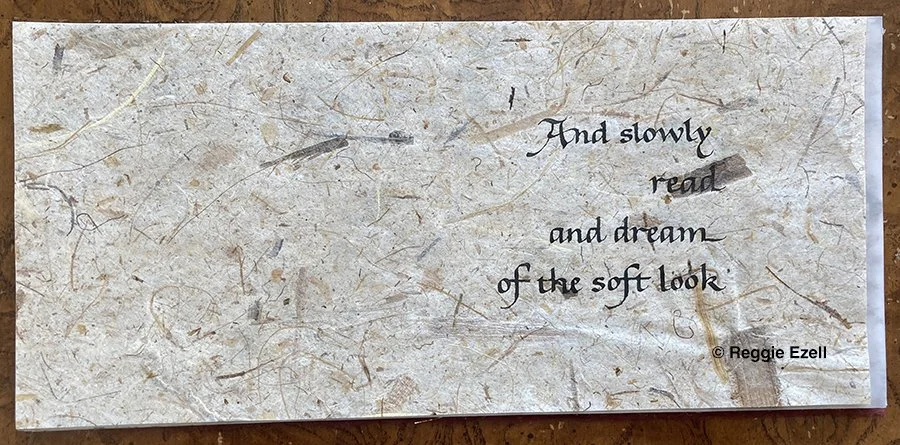 And slowly
read
and dream
of the soft look
© Reggie Ezell